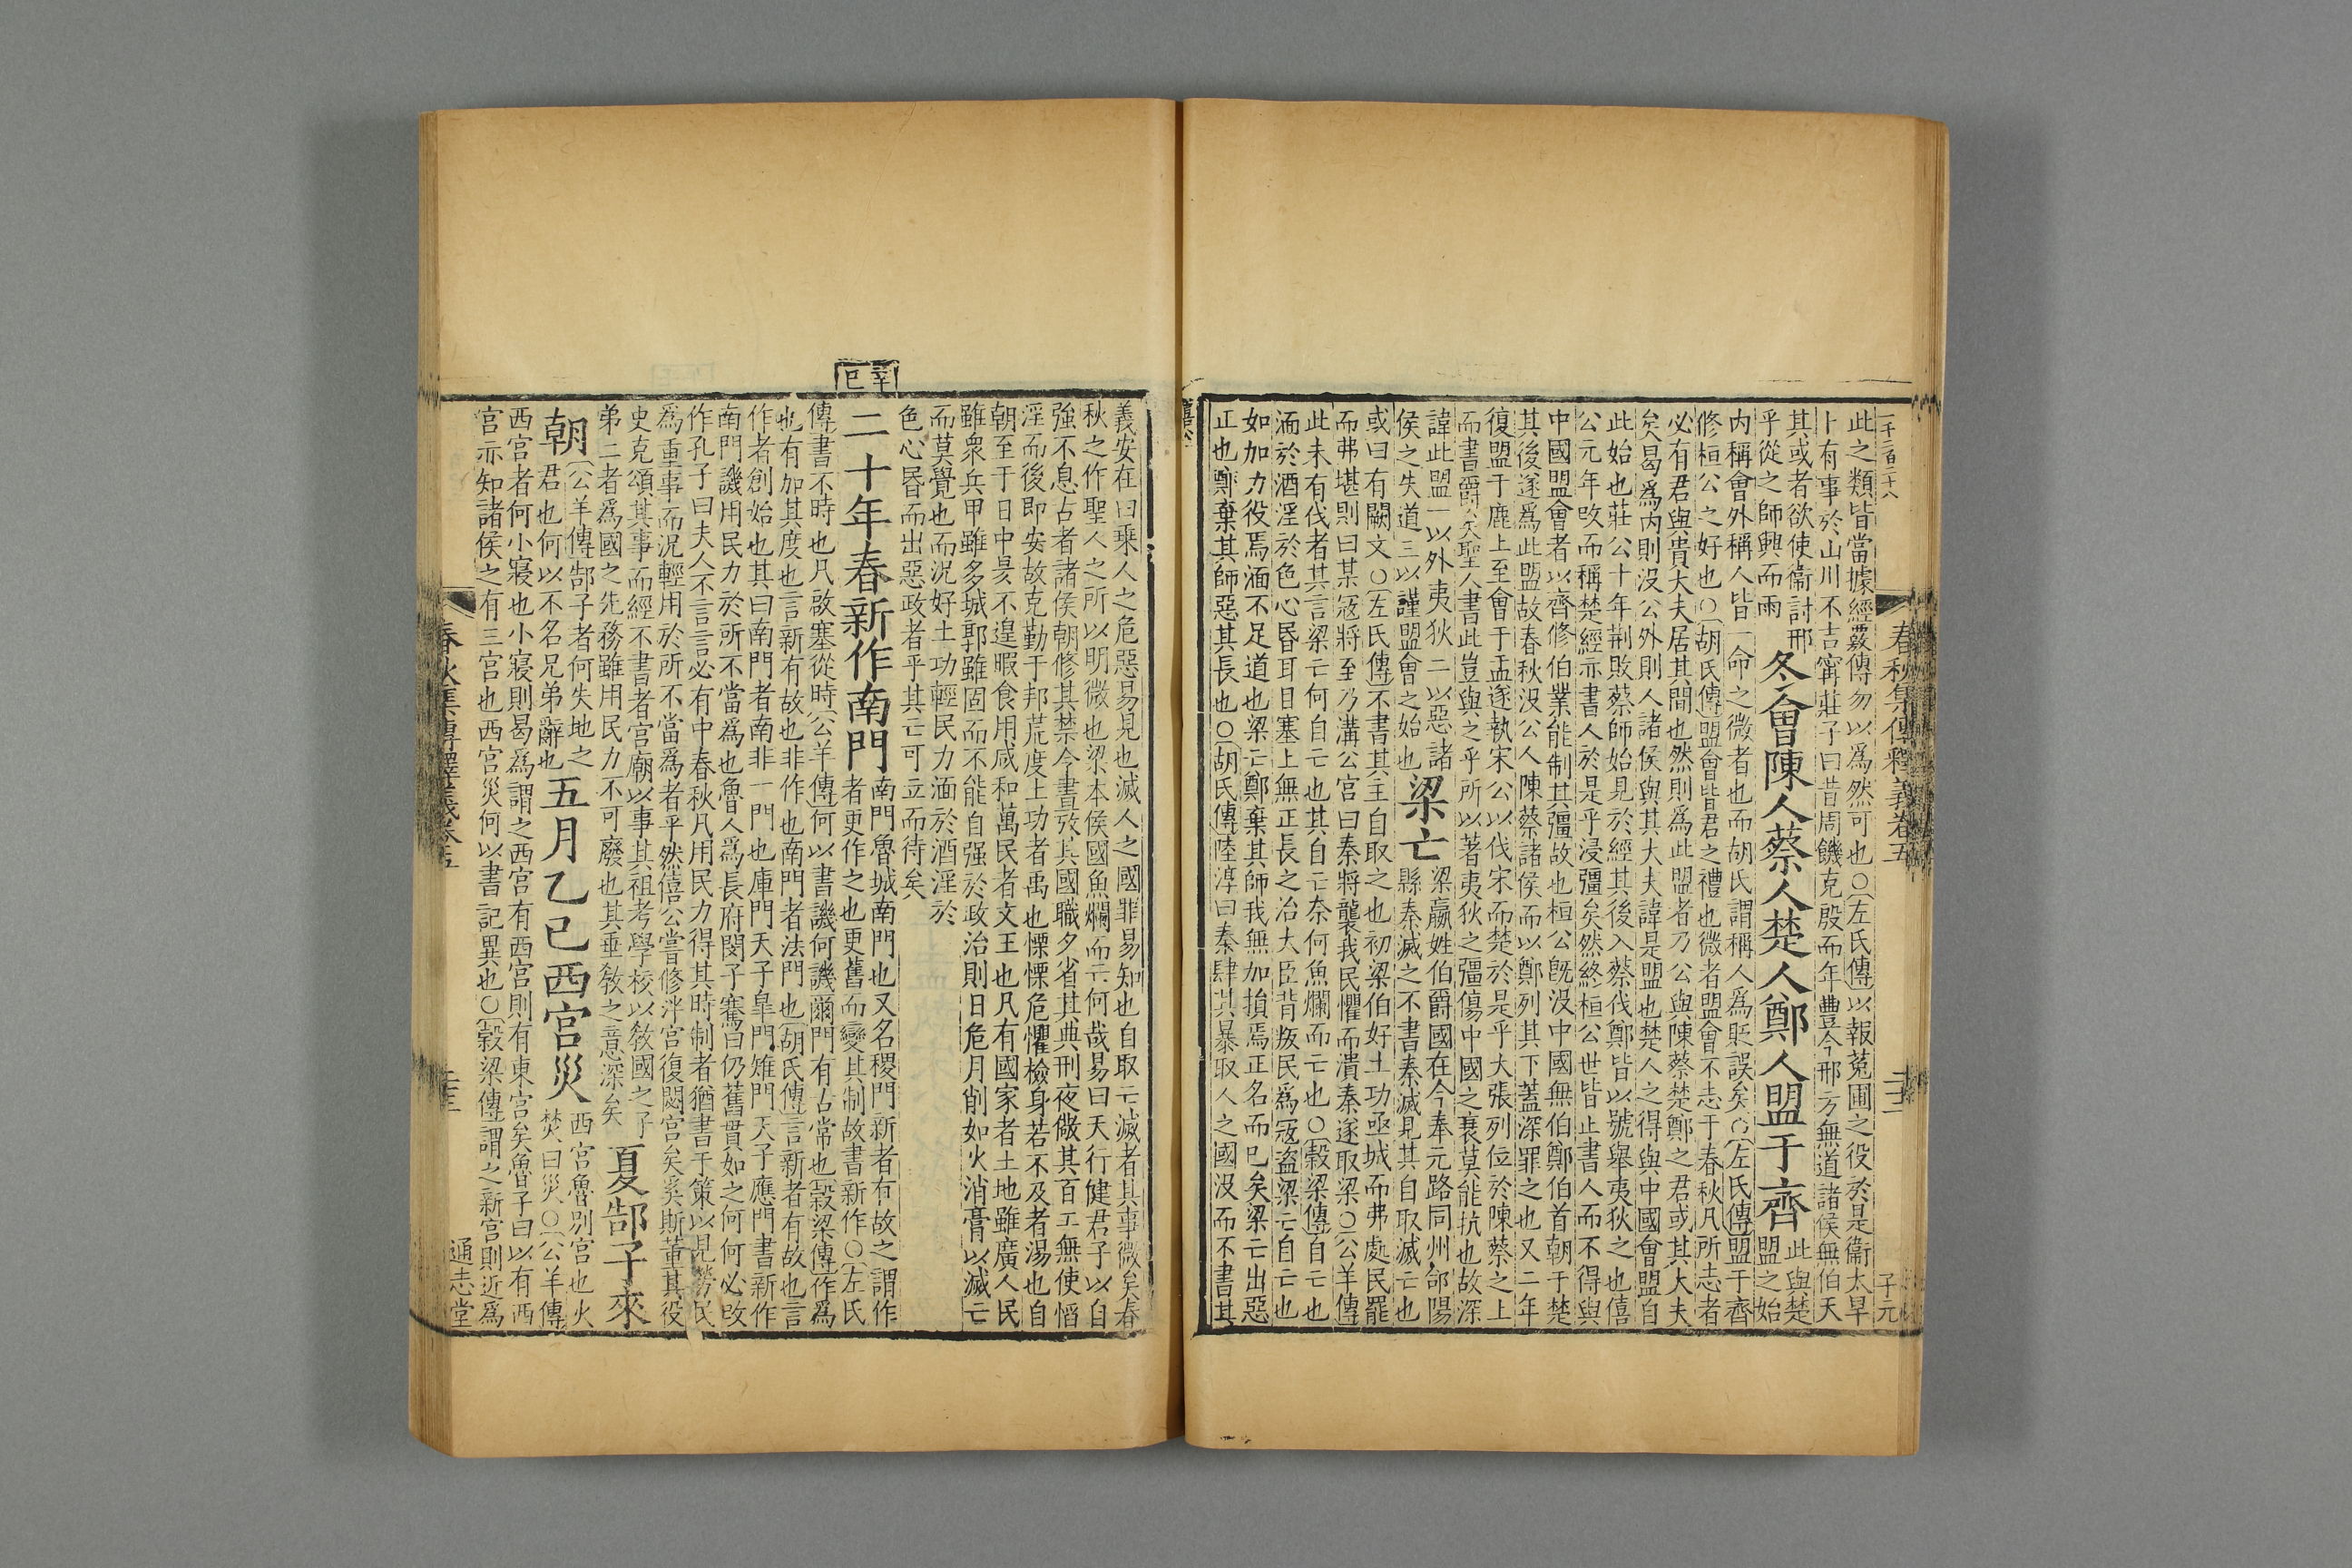 一千二百二十八
春秋集傳釋義卷五
二十二
子元
此之類皆當據經覈傳勿以爲然可也○左氏傳以報菟圃之役於是衞大旱
卜有事於山川不吉甯莊子曰昔周饑克殷而年豐今邢方無道諸侯無伯天
其或者欲使衞討邢乎從之師興而雨
冬會陳人蔡人楚人鄭人盟于齊
此與楚盟之始
內稱會外稱人皆一命之微者也而胡氏謂稱人爲貶誤矣○左氏傳盟于齊
修桓公之好也○胡氏傳盟會皆君之禮也微者盟會不志于春秋凡所志者
必有君與貴大夫居其間也然則爲此盟者乃公與陳蔡楚鄭之君或其大夫
矣曷爲內則没公外則人諸侯與其大夫諱是盟也楚人之得與中國會盟自
此始也莊公十年荆敗蔡師始見於經其後入蔡伐鄭皆以號舉夷狄之也僖
公元年改而稱楚經亦書人於是乎浸彊矣然終桓公世皆止書人而不得與
中國盟會者以齊修伯業能制其彊故也桓公旣没中國無伯鄭伯首朝于楚
其後遂爲此盟故春秋没公人陳蔡諸侯而以鄭列其下蓋深罪之也又二年
復盟于鹿上至會于盂遂執宋公以伐宋而楚於是乎大張列位於陳蔡之上
而書爵矣聖人書此豈與之乎所以著夷狄之彊傷中國之衰莫能抗也故深
諱此盟一以外夷狄二以惡諸侯之失道三以謹盟會之始也
梁亡
梁嬴姓伯爵國在今奉元路同州郃陽縣秦滅之不書秦滅見其自取滅亡也
或曰有闕文○左氏傳不書其主自取之也初梁伯好土功亟城而弗處民罷
而弗堪則曰某寇將至乃溝公宮曰秦將襲我民懼而潰秦遂取梁○公羊傳
此未有伐者其言梁亡何自亡也其自亡奈何魚爛而亡也○穀梁傳自亡也
湎於酒淫於色心昬耳目塞上無正長之治大臣背叛民爲寇盜梁亡自亡也
如加力役焉湎不足道也梁亡鄭棄其師我無加損焉正名而已矣梁亡出惡
正也鄭棄其師惡其長也○胡氏傳陸淳曰秦肆其暴取人之國没而不書其
僖公
義安在曰乗人之危惡易見也滅人之國罪易知也自取亡滅者其事微矣春
秋之作聖人之所以明微也梁本侯國魚爛而亡何哉易曰天行健君子以自
強不息古者諸侯朝修其禁令晝攷其國職夕省其典刑夜儆其百工無使慆
淫而後即安故克勤于邦荒度土功者禹也慄慄危懼檢身若不及者湯也自
朝至于日中昃不遑暇食用咸和萬民者文王也凡有國家者土地雖廣人民
雖衆兵甲雖多城郭雖固而不能自强於政治則日危月削如火消膏以滅亡
而莫覺也而況好土功輕民力湎於酒淫於
色心昬而出惡政者乎其亡可立而待矣
辛巳
二十年春新作南門
南門魯城南門也又名稷門新者有故之謂作者更作之也更舊而變其制故書新作○左氏
傳書不時也凡啟塞從時公羊傳何以書譏何譏爾門有古常也穀梁傳作爲
也有加其度也言新有故也非作也南門者法門也胡氏傳言新者有故也言
作者創始也其曰南門者南非一門也庫門天子皐門雉門天子應門書新作
南門譏用民力於所不當爲也魯人爲長府閔子騫曰仍舊貫如之何何必改
作孔子曰夫人不言言必有中春秋凡用民力得其時制者猶書于策以見勞民
爲重事而況輕用於所不當爲者乎然僖公嘗修泮宮復閟宮矣奚斯董其役
史克頌其事而經不書者宮廟以事其祖考學校以敎國之子
弟二者爲國之先務雖用民力不可廢也其垂敎之意深矣
夏郜子來朝
公羊傳郜子者何失地之君也何以不名兄弟辭也
五月乙巳西宮災
西宮魯別宮也火焚曰災○公羊傳
西宮者何小寢也小寢則曷爲謂之西宮有西宮則有東宮矣魯子曰以有西
宮亦知諸侯之有三宮也西宮災何以書記異也○穀梁傳謂之新宮則近爲
春秋集傳釋義卷五
二十三
通志堂